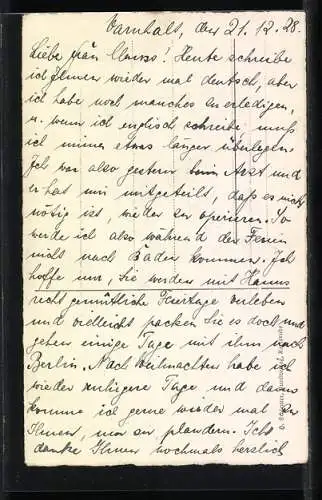 Varnhalt, den 21.12.28.
Liebe Frau! Heute schreibe
ich Ihnen wieder mal deutsch, aber
ich habe noch manches zu erledigen,
u. wenn ich englisch schreibe muß
ich immer etwas länger überlegen.
Ich war also gestern beim Arzt und
er hat mir mitgeteilt, daß es nicht
nötig ist, wieder zu operieren. So
werde ich also während der Ferien
nicht nach Baden kommen. Ich
hoffe nur, Sie werden mit Hanns
recht gemütliche Feiertage verleben
und vielleicht packen Sie es doch und
gehen einige Tage mit ihm nach
Berlin. Nach Weihnachten habe ich
wieder ruhigere Tage und dann
komme ich gerne wieder mal zu
Ihnen, um zu plaudern. Ich
danke Ihnen nochmals herzlich